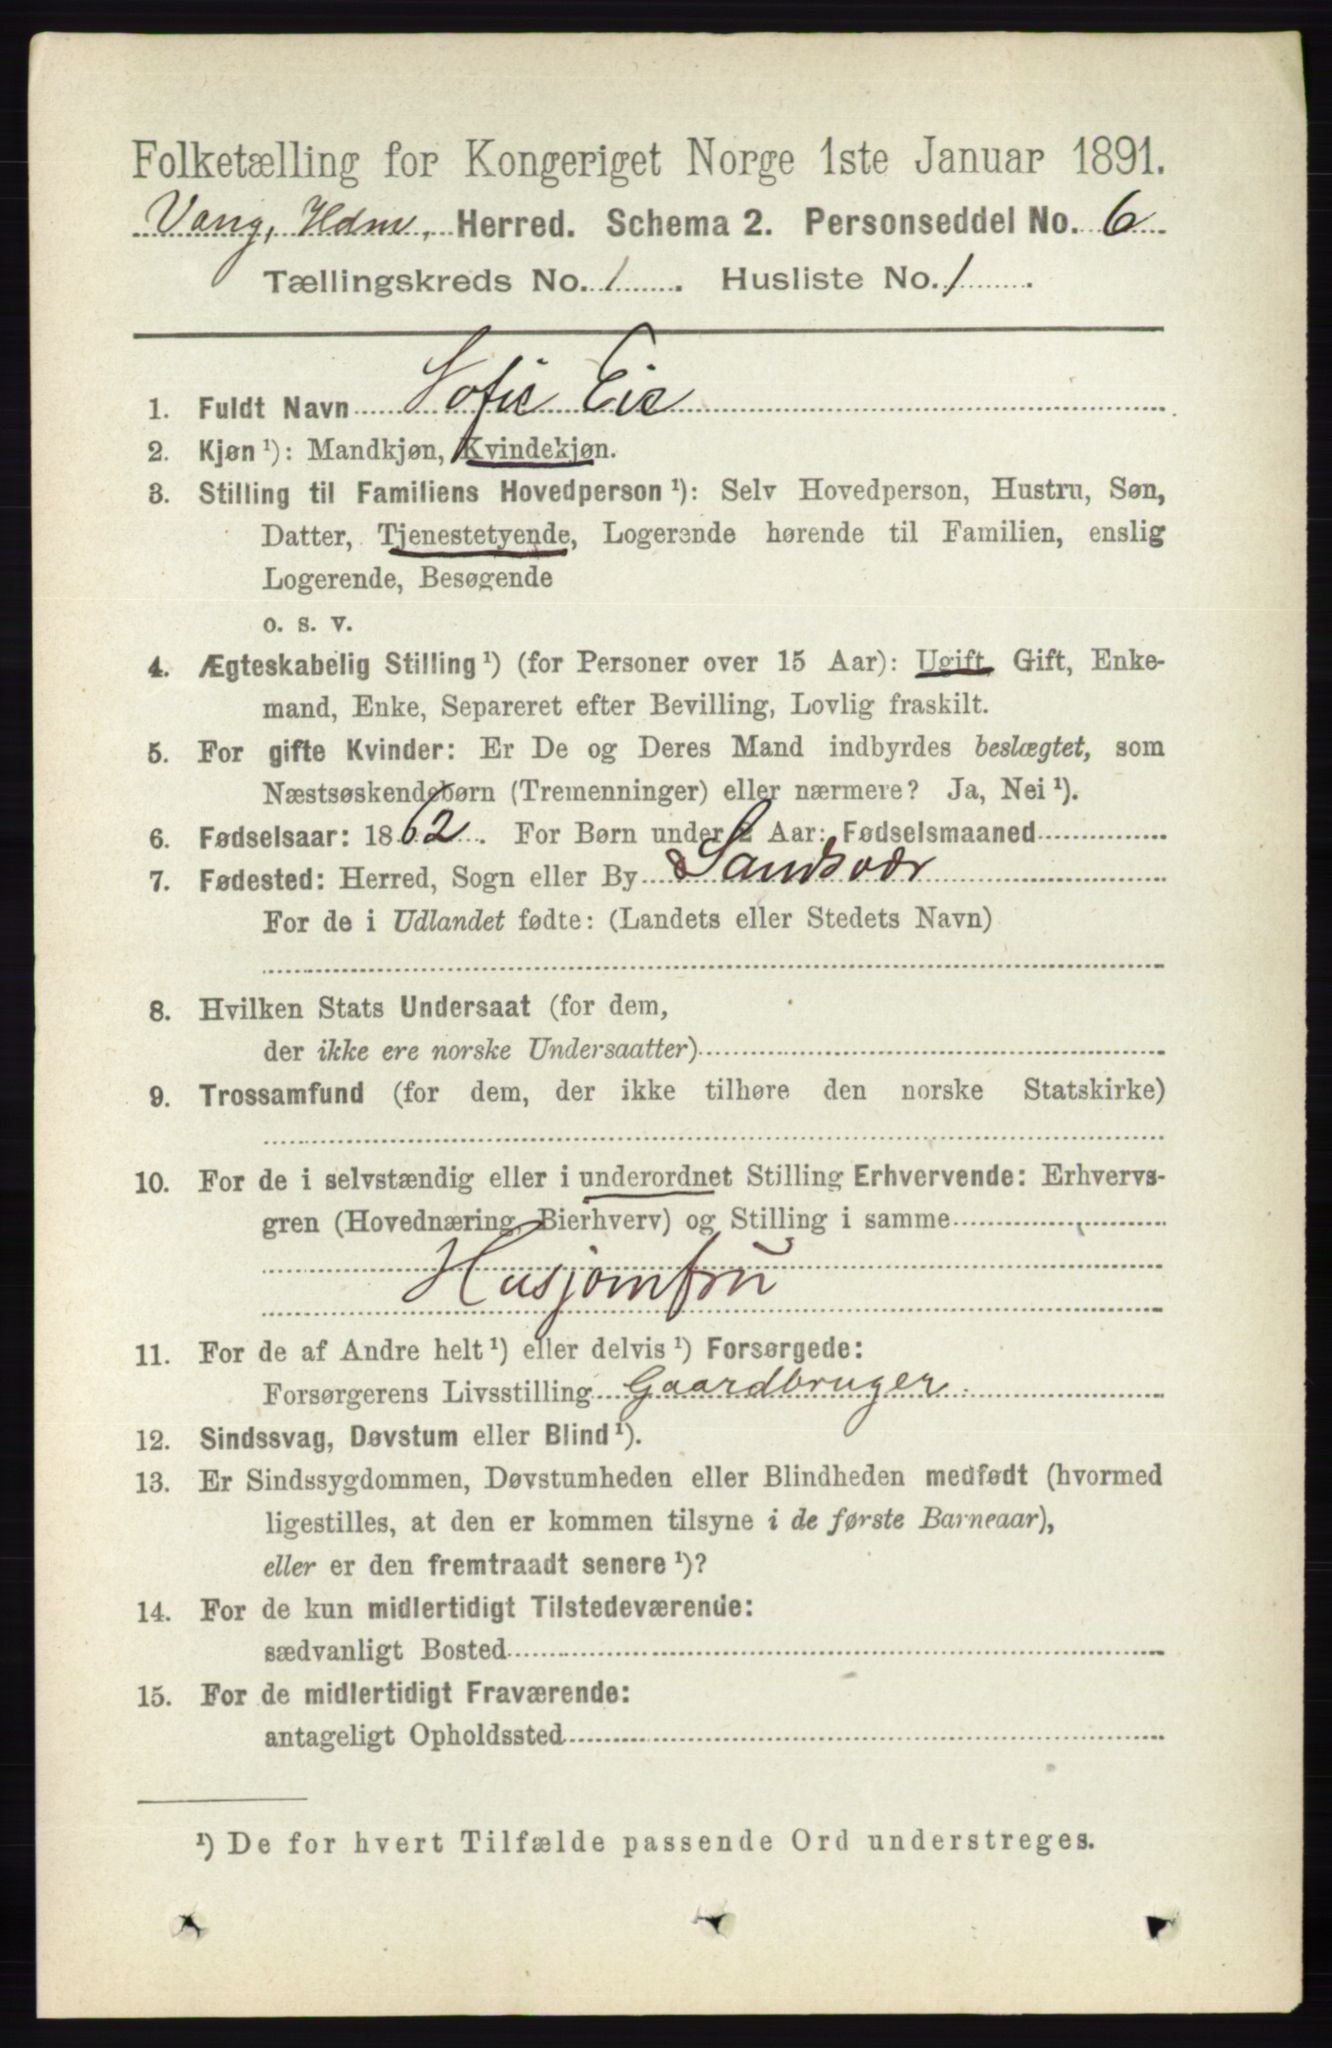 Folketælling for Kongeriget Norge 1ste Januar 1891.
Vang, Hdm, Herred. Schema 2. Personseddel No. 6
Tællingskreds No. 1. Husliste No. 1.
1. Fuldt Navn Sofie Eie
2. Kjøn ¹): Mandkjøn, Kvindekjøn.
3. Stilling til Familiens Hovedperson ¹): Selv Hovedperson, Hustru, Søn,
Datter, Tjenestetyende, Logerende hørende til Familien, enslig
Logerende, Besøgende
o. s. v.
4. Ægteskabelig Stilling ¹) (for Personer over 15 Aar): Ugift, Gift, Enke-
mand, Enke, Separeret efter Bevilling, Lovlig fraskilt.
5. For gifte Kvinder: Er De og Deres Mand indbyrdes beslægtet, som
Næstsøskendebørn (Tremenninger) eller nærmere? Ja, Nei ¹).
6. Fødselsaar: 1862. For Børn under 2 Aar: Fødselsmaaned
7. Fødested: Herred, Sogn eller By Sandsvær
For de i Udlandet fødte: (Landets eller Stedets Navn)
8. Hvilken Stats Undersaat (for dem,
der ikke ere norske Undersaatter)
9. Trossamfund (for dem, der ikke tilhøre den norske Statskirke)
10. For de i selvstændig eller i underordnet Stilling Erhvervende: Erhvervs-
gren (Hovednæring, Bierhverv) og Stilling i samme
Husjomfru
11. For de af Andre helt ¹) eller delvis ¹) Forsørgede:
Forsørgerens Livsstilling Gaardbruger
12. Sindssvag, Døvstum eller Blind ¹).
13. Er Sindssygdommen, Døvstumheden eller Blindheden medfødt (hvormed
ligestilles, at den er kommen tilsyne i de første Barneaar),
eller er den fremtraadt senere ¹)?
14. For de kun midlertidigt Tilstedeværende:
sædvanligt Bosted
15. For de midlertidigt Fraværende:
antageligt Opholdssted
¹) De for hvert Tilfælde passende Ord understreges.